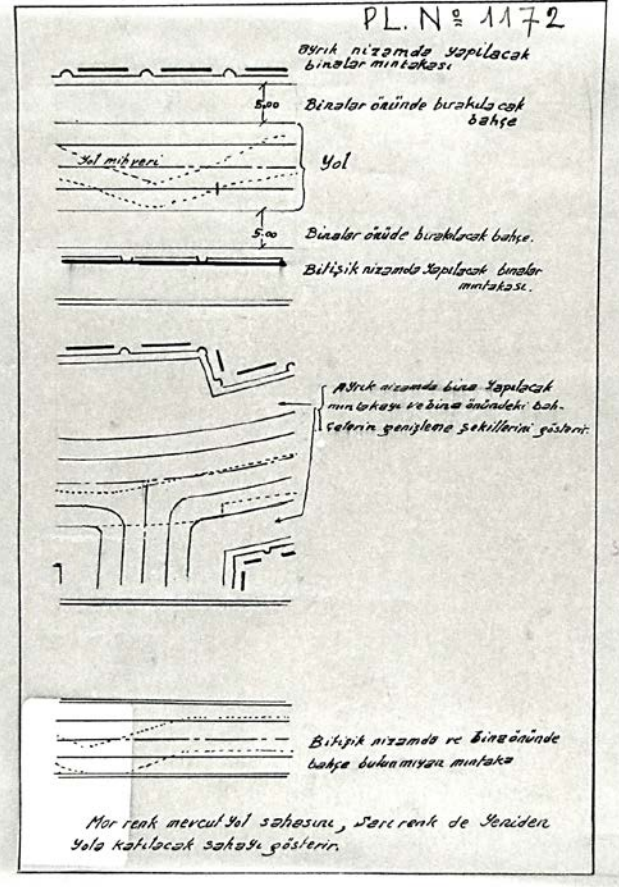 PL. Nº 1172
Ayrık nizamda yapılacak
binalar mıntakası
5.00
Binalar önünde bırakılacak
bahçe
Yol mihveri
Yol
5.00
Binalar önüde bırakılacak bahçe.
Bitişik nizamda yapılacak binalar
mıntakası.
Ayrık nizamda bina yapılacak
mıntakayı ve bina önündeki bah-
çelerin genişleme şekillerini gösterir.
Bitişik nizamda ve bina önünde
bahçe bulunmıyan mıntaka
Mor renk mevcut yol sahasını, Sarı renk de yeniden
yola katılacak sahayı gösterir.